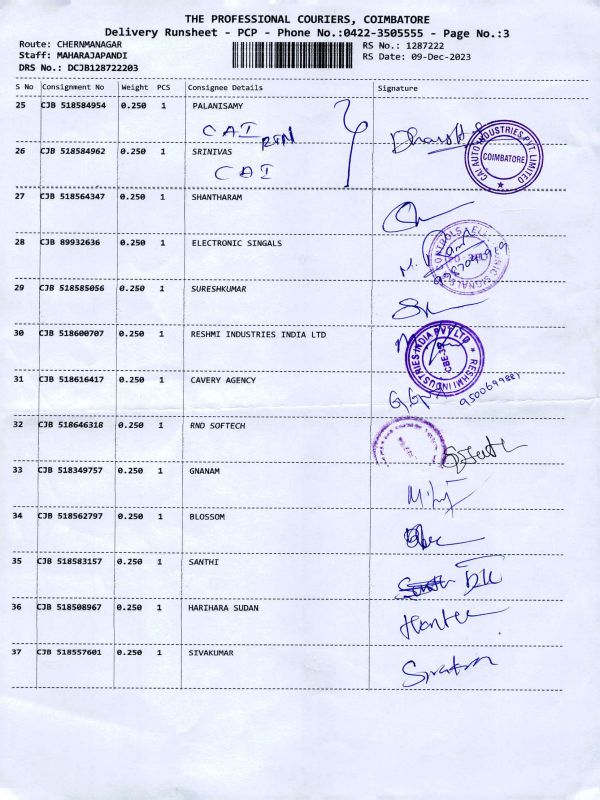 THE PROFESSIONAL COURIERS, COIMBATORE
Delivery Runsheet - PCP - Phone No.:0422-3505555 - Page No.:3
Route: CHERNMANAGAR
RS No.: 1287222
Staff: MAHARAJAPANDI
RS Date: 09-Dec-2023
DRS No.: DCJB128722203
S No Consignment No Weight PCS Consignee Details Signature
25 CJB 518584954 0.250 1 PALANISAMY
CAI RTN
CAI AUTO INDUSTRIES PVT. LIMITED
COIMBATORE
26 CJB 518584962 0.250 1 SRINIVAS
CAI
27 CJB 518564347 0.250 1 SHANTHARAM
28 CJB 89932636 0.250 1 ELECTRONIC SINGALS
29 CJB 518585056 0.250 1 SURESHKUMAR
30 CJB 518600707 0.250 1 RESHMI INDUSTRIES INDIA LTD
RESHMI INDUSTRIES INDIA PVT LTD
31 CJB 518616417 0.250 1 CAVERY AGENCY
32 CJB 518646318 0.250 1 RND SOFTECH
33 CJB 518349757 0.250 1 GNANAM
34 CJB 518562797 0.250 1 BLOSSOM
35 CJB 518583157 0.250 1 SANTHI
36 CJB 518508967 0.250 1 HARIHARA SUDAN
37 CJB 518557601 0.250 1 SIVAKUMAR